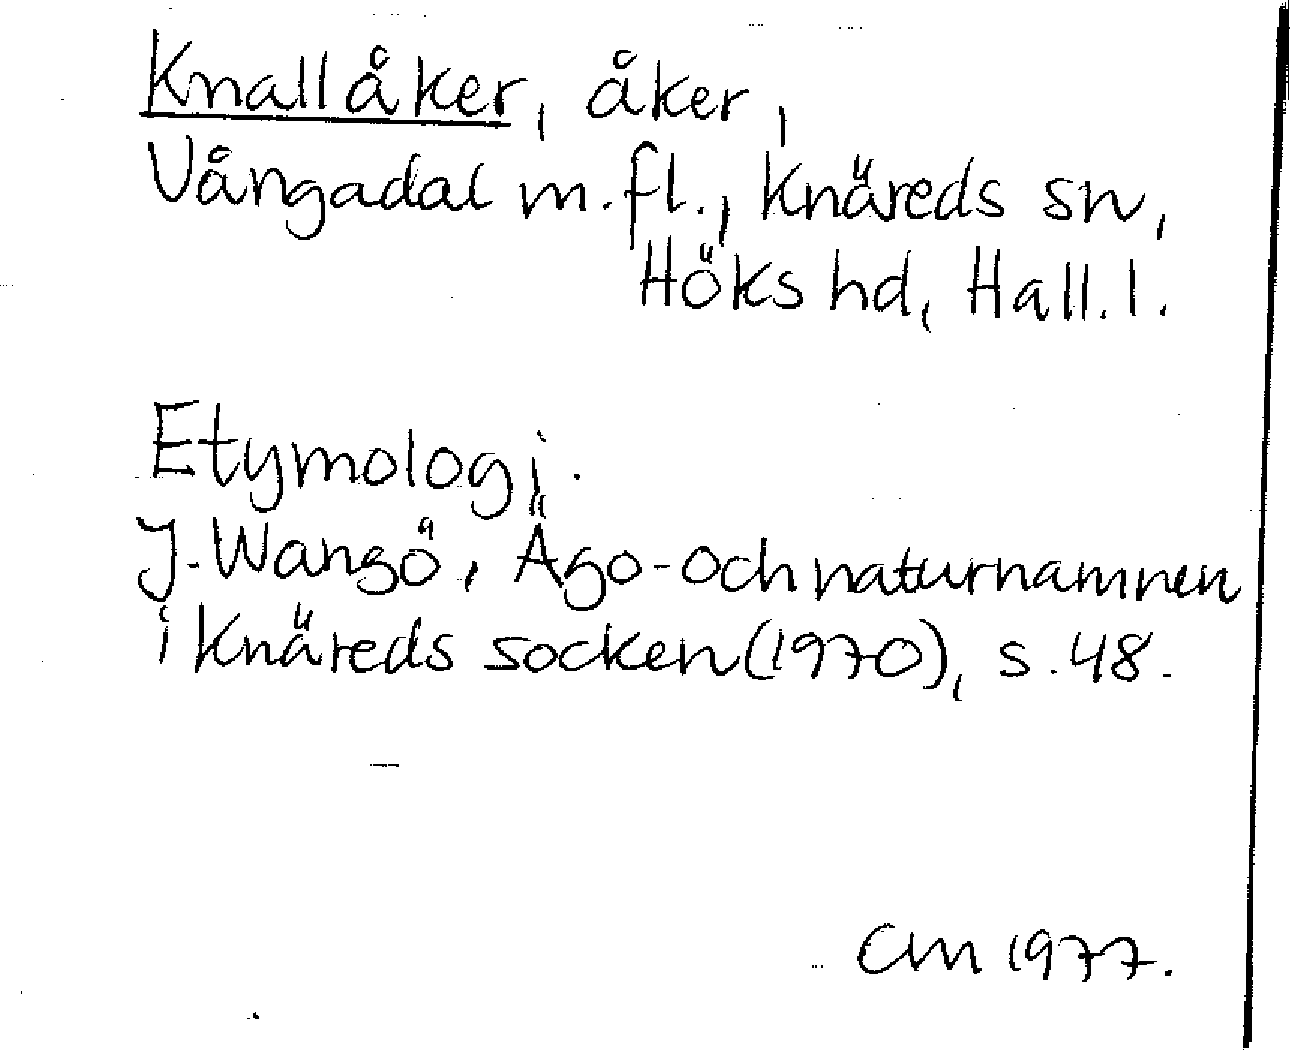 Knallåker, åker,
Vångadal m.fl., Knäreds sn,
Höks hd, Hall. l.
Etymologi.
J. Wangö, Ägo- och naturnamnen
i Knäreds socken (1970), s. 48.
CM 1977.